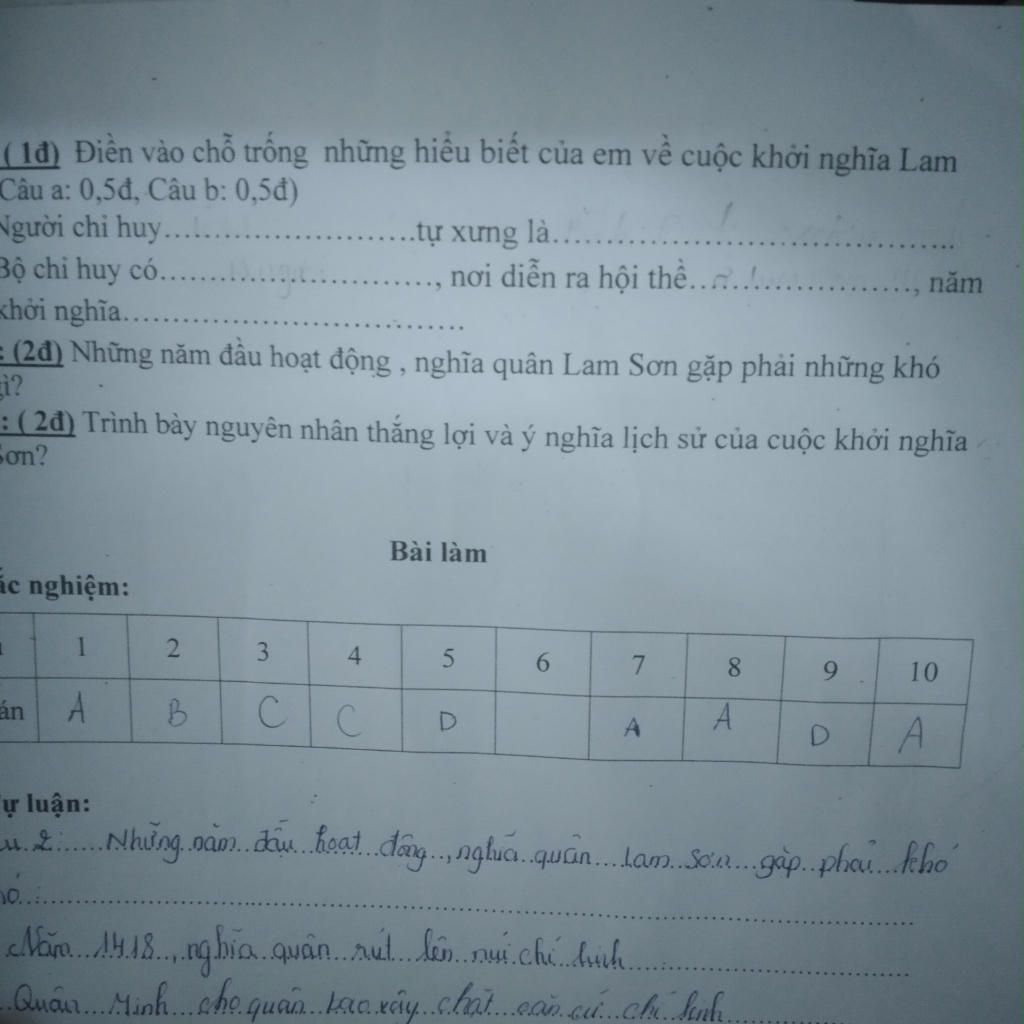 ( 1đ) Điền vào chỗ trống những hiểu biết của em về cuộc khởi nghĩa Lam
Câu a: 0,5đ, Câu b: 0,5đ)
Người chỉ huy..............................tự xưng là..............................................
Bộ chỉ huy có................................, nơi diễn ra hội thề.........................., năm
khởi nghĩa........................................
: (2đ) Những năm đầu hoạt động , nghĩa quân Lam Sơn gặp phải những khó
gì?
: ( 2đ) Trình bày nguyên nhân thắng lợi và ý nghĩa lịch sử của cuộc khởi nghĩa
Sơn?
Bài làm
ắc nghiệm:
1 2 3 4 5 6 7 8 9 10
án A B C C D A A D A
ự luận:
u 2: Những năm đầu hoạt động, nghĩa quân Lam Sơn gặp phải khó
Năm 1418, nghĩa quân rút lên núi chí linh
Quân Minh cho quân bao vây chặt căn cứ chí linh